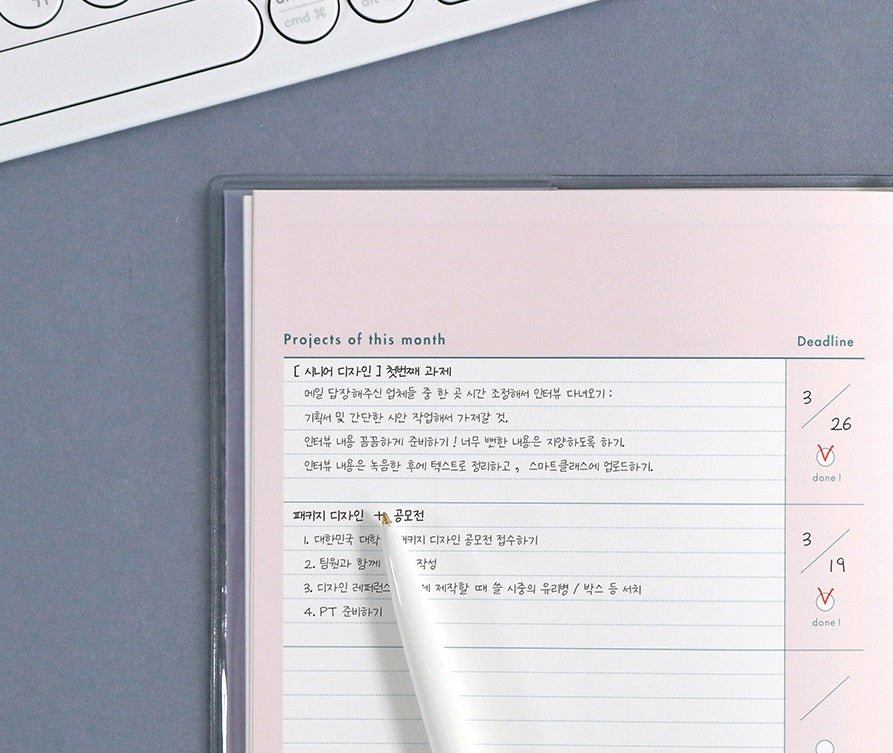 cmd ⌘
Projects of this month
Deadline
[ 시니어 디자인 ] 첫번째 과제
메일 답장해주신 업체들 중 한 곳 시간 조정해서 인터뷰 다녀오기 :
기획서 및 간단한 시안 작업해서 가져갈 것.
인터뷰 내용 꼼꼼하게 준비하기 ! 너무 뻔한 내용은 지양하도록 하기.
인터뷰 내용은 녹음한 후에 텍스트로 정리하고 , 스마트클래스에 업로드하기.
3 / 26
done !
패키지 디자인 + 공모전
1. 대한민국 대학 키지 디자인 공모전 접수하기
2. 팀원과 함께 작성
3. 디자인 레퍼런스 제작할 때 쓸 시중의 유리병 / 박스 등 서치
4. PT 준비하기
3 / 19
done !